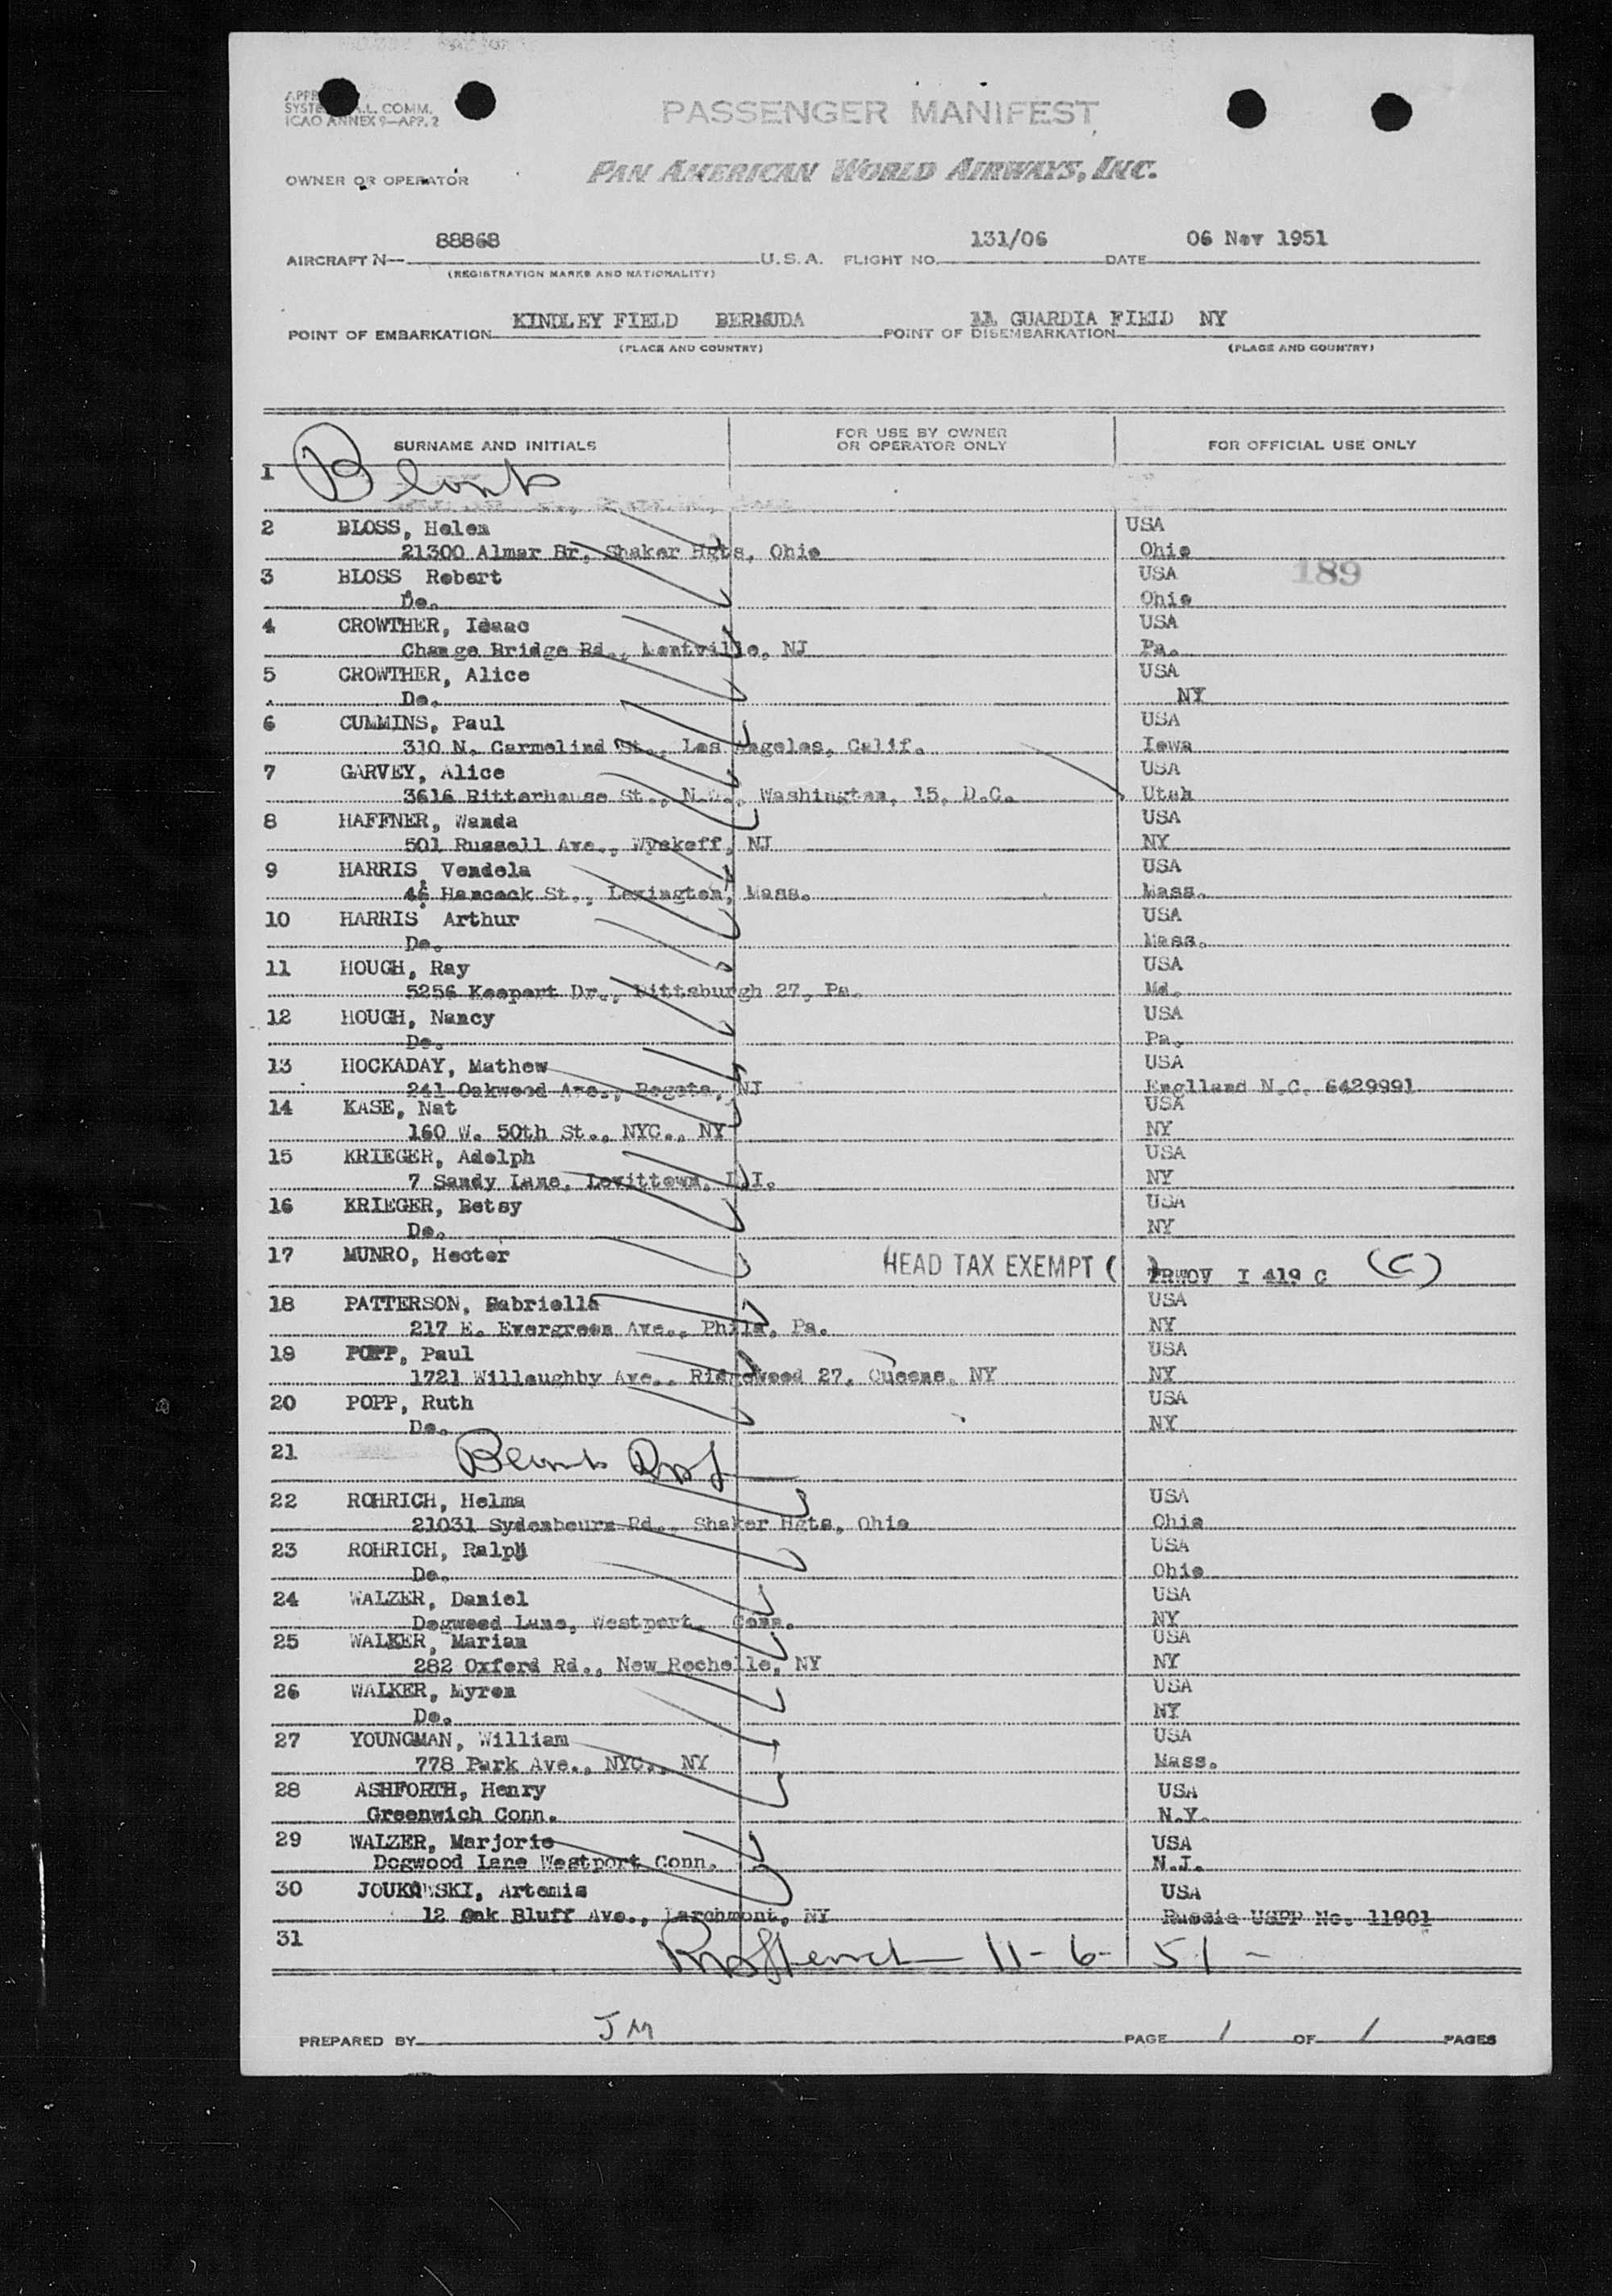 PASSENGER MANIFEST
SYSTE A.L. COMM.
ICAO ANNEX 9—APP. 2
OWNER OR OPERATOR
PAN AMERICAN WORLD AIRWAYS, INC.
88868 131/06 06 Nov 1951
AIRCRAFT N— U.S.A. FLIGHT NO. DATE
(REGISTRATION MARKS AND NATIONALITY)
KINDLEY FIELD BERMUDA GUARDIA FIELD NY
POINT OF EMBARKATION POINT OF DISEMBARKATION
(PLACE AND COUNTRY) (PLACE AND COUNTRY)
SURNAME AND INITIALS FOR USE BY OWNER OR OPERATOR ONLY FOR OFFICIAL USE ONLY
1 Blank
2 BLOSS, Helen USA
21300 Almar Dr, Shaker Hgts, Ohio Ohio
3 BLOSS Robert USA 189
Do. Ohio
4 CROWTHER, Isaac USA
Change Bridge Rd., Montville, NJ Pa.
5 CROWTHER, Alice USA
Do. NY
6 CUMMINS, Paul USA
310 N. Carmelind St., Los Angeles, Calif. Iowa
7 GARVEY, Alice USA
3616 Ritterhouse St., N.W., Washington, 15, D.C. Utah
8 HAFFNER, Wanda USA
501 Russell Ave., Wyckoff, NJ NY
9 HARRIS, Vendela USA
46 Hancock St., Lexington, Mass. Mass.
10 HARRIS Arthur USA
Do. Mass.
11 HOUGH, Ray USA
5256 Keeport Dr., Pittsburgh 27, Pa. Md.
12 HOUGH, Nancy USA
Do. Pa.
13 HOCKADAY, Mathew USA
241 Oakwood Ave., Bogota, NJ Englland N.C. 6429991
14 KASE, Nat USA
160 W. 50th St., NYC., NY NY
15 KRIEGER, Adolph USA
7 Sandy Lane, Levittown, L.I. NY
16 KRIEGER, Betsy USA
Do. NY
17 MUNRO, Hector HEAD TAX EXEMPT ( ) TRWOV I 419 C (C)
18 PATTERSON, Gabriella USA
217 E. Evergreen Ave., Phila, Pa. NY
19 POPP, Paul USA
1721 Willoughby Ave., Ridgewood 27, Queens, NY NY
20 POPP, Ruth USA
Do. NY
21 Blank
22 ROHRICH, Helma USA
21031 Sydenbourn Rd., Shaker Hgts, Ohio Ohio
23 ROHRICH, Ralph USA
Do. Ohio
24 WALZER, Daniel USA
Dogwood Lane, Westport, Conn. NY
25 WALKER, Marian USA
282 Oxford Rd., New Rochelle, NY NY
26 WALKER, Myron USA
Do. NY
27 YOUNGMAN, William USA
778 Park Ave., NYC., NY Mass.
28 ASHFORTH, Henry USA
Greenwich Conn. N.Y.
29 WALZER, Marjorie USA
Dogwood Lane Westport Conn. N.J.
30 JOUKOWSKI, Artemis USA
12 Oak Bluff Ave., Larchmont, NY Russia USPP No. 11901
31 11-6-51-
PREPARED BY JM PAGE 1 OF 1 PAGES